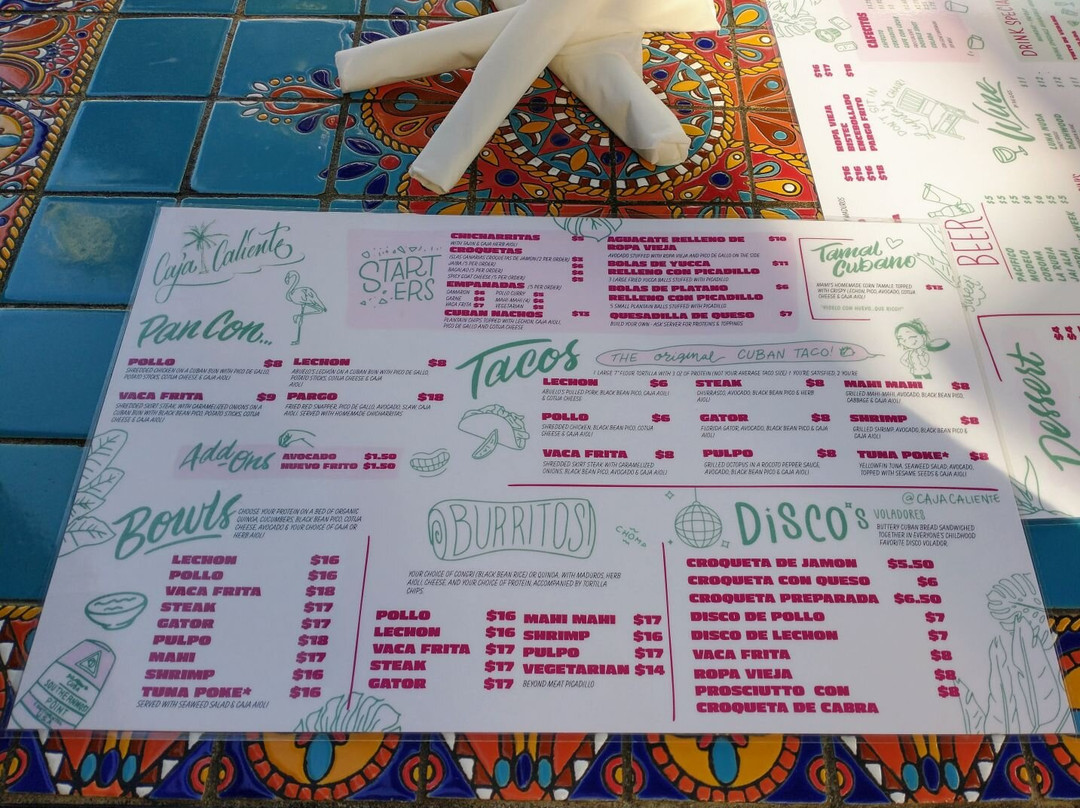 Caja Caliente
STARTERS
CHICHARRITAS $5
WITH TAJIN & CAJA HERB AIOLI
CROQUETAS
JAIBA (5 PER ORDER)
BACALAO (5 PER ORDER)
SPICY GOAT CHEESE (5 PER ORDER)
EMPANADAS (3 PER ORDER)
CAMARON $6 POLLO CURRY $5
CARNE $6 MAHI MAHI (4) $6
VACA FRITA $7 VEGETARIAN
CUBAN NACHOS $13
PLANTAIN CHIPS TOPPED WITH LECHON, CAJA AIOLI,
PICO DE GALLO AND COTIJA CHEESE
AGUACATE RELLENO DE $10
ROPA VIEJA
AVOCADO STUFFED WITH ROPA VIEJA AND PICO DE GALLO ON THE SIDE
BOLAS DE YUCCA $11
RELLENO CON PICADILLO
5 LARGE FRIED YUCCA BALLS STUFFED WITH PICADILLO
BOLAS DE PLATANO $6
RELLENO CON PICADILLO
5 SMALL PLANTAIN BALLS STUFFED WITH PICADILLO
QUESADILLA DE QUESO $7
BUILD YOUR OWN - ASK SERVER FOR PROTEINS & TOPPINGS
Tamal
Cubano
MAMI'S HOMEMADE CORN TAMALE TOPPED
WITH CRISPY LECHON, PICO, AVOCADO, COTIJA
CHEESE & CAJA AIOLI
$13
Pan Con...
POLLO $8
SHREDDED CHICKEN ON A CUBAN BUN WITH PICO DE GALLO,
POTATO STICKS, COTIJA CHEESE & CAJA AIOLI
LECHON $8
ABUELO'S LECHON ON A CUBAN BUN WITH PICO DE GALLO,
POTATO STICKS, COTIJA CHEESE & CAJA
AIOLI
VACA FRITA $9
SHREDDED SKIRT STEAK, WITH CARAMELIZED ONIONS ON A
CUBAN BUN WITH BLACK BEAN PICO, POTATO STICKS, COTIJA
CHEESE & CAJA AIOLI
PARGO $18
FRIED RED SNAPPER, PICO DE GALLO, AVOCADO, SLAW, CAJA
AIOLI. SERVED WITH HOMEMADE CHICHARRITAS
Add-Ons
AVOCADO $1.50
HUEVO FRITO $1.50
Tacos
THE original CUBAN TACO!
1 LARGE 7" FLOUR TORTILLA WITH 3 OZ OF PROTEIN (NOT YOUR AVERAGE TACO SIZE) 1 YOU'RE SATISFIED 2 YOU'RE
LECHON $6
ABUELO'S PULLED PORK, BLACK BEAN PICO, CAJA AIOLI
& COTIJA CHEESE
STEAK $8
CHURRASCO, AVOCADO, BLACK BEAN PICO & HERB
AIOLI
MAHI MAHI $8
GRILLED MAHI-MAHI, AVOCADO, BLACK BEAN PICO,
CABBAGE & CAJA AIOLI
POLLO $6
SHREDDED CHICKEN, BLACK BEAN PICO, COTIJA
CHEESE & CAJA AIOLI
GATOR $8
FLORIDA GATOR, AVOCADO, BLACK BEAN PICO & CAJA
AIOLI
SHRIMP $8
GRILLED SHRIMP, AVOCADO, BLACK BEAN PICO &
CAJA AIOLI
VACA FRITA $8
SHREDDED SKIRT STEAK WITH CARAMELIZED
ONIONS, BLACK BEAN PICO, AVOCADO & CAJA AIOLI
PULPO $8
GRILLED OCTOPUS IN A ROCOTO PEPPER SAUCE,
AVOCADO, BLACK BEAN PICO & CAJA AIOLI
TUNA POKE* $8
YELLOWFIN TUNA, SEAWEED SALAD, AVOCADO,
TOPPED WITH SESAME SEEDS & CAJA AIOLI
@CAJACALIENTE
Bowls
CHOOSE YOUR PROTEIN ON A BED OF ORGANIC
QUINOA, CUCUMBERS, BLACK BEAN PICO, COTIJA
CHEESE, AVOCADO & YOUR CHOICE OF CAJA OR
HERB AIOLI
LECHON $16
POLLO $16
VACA FRITA $18
STEAK $17
GATOR $17
PULPO $18
MAHI $17
SHRIMP $16
TUNA POKE* $16
SERVED WITH SEAWEED SALAD & CAJA AIOLI
SOUTHERNMOST
POINT
BURRITOS!
CHOMP
YOUR CHOICE OF CONGRI (BLACK BEAN RICE) OR QUINOA, WITH MADUROS, HERB
AIOLI, CHEESE, AND YOUR CHOICE OF PROTEIN, ACCOMPANIED BY TORTILLA
CHIPS
POLLO $16
LECHON $16
VACA FRITA $17
STEAK $17
GATOR $17
MAHI MAHI $17
SHRIMP $16
PULPO $17
VEGETARIAN $14
BEYOND MEAT PICADILLO
DiSCO's
VOLADORES
BUTTERY CUBAN BREAD SANDWICHED
TOGETHER IN EVERYONE'S CHILDHOOD
FAVORITE DISCO VOLADOR.
CROQUETA DE JAMON $5.50
CROQUETA CON QUESO $6
CROQUETA PREPARADA $6.50
DISCO DE POLLO $7
DISCO DE LECHON $7
VACA FRITA $8
ROPA VIEJA $8
PROSCIUTTO CON $8
CROQUETA DE CABRA
CAFECITOS
DRINK SPECIA
$16
$17
$18
ROPA VIEJA
BISTEC
ENCEBOLLADO
PARGO FRITO
$16
$16
$18
$18
Wine
BEER
Dessert